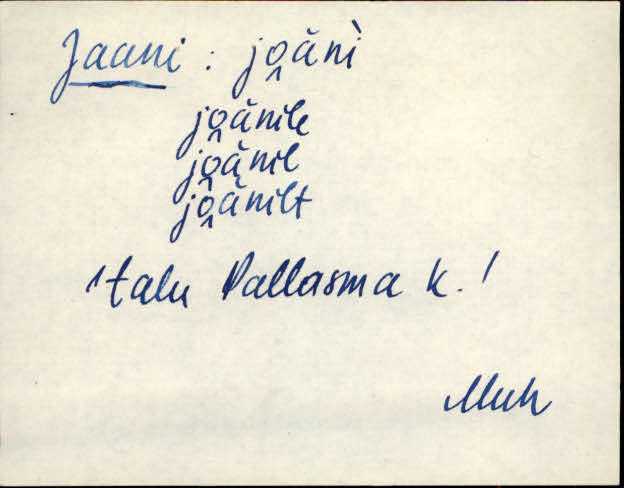 Jaani : jo̭ănì
jo̭ănile
jo̭ănil
jo̭ănilt
'talu Pallasma k. /
Muh